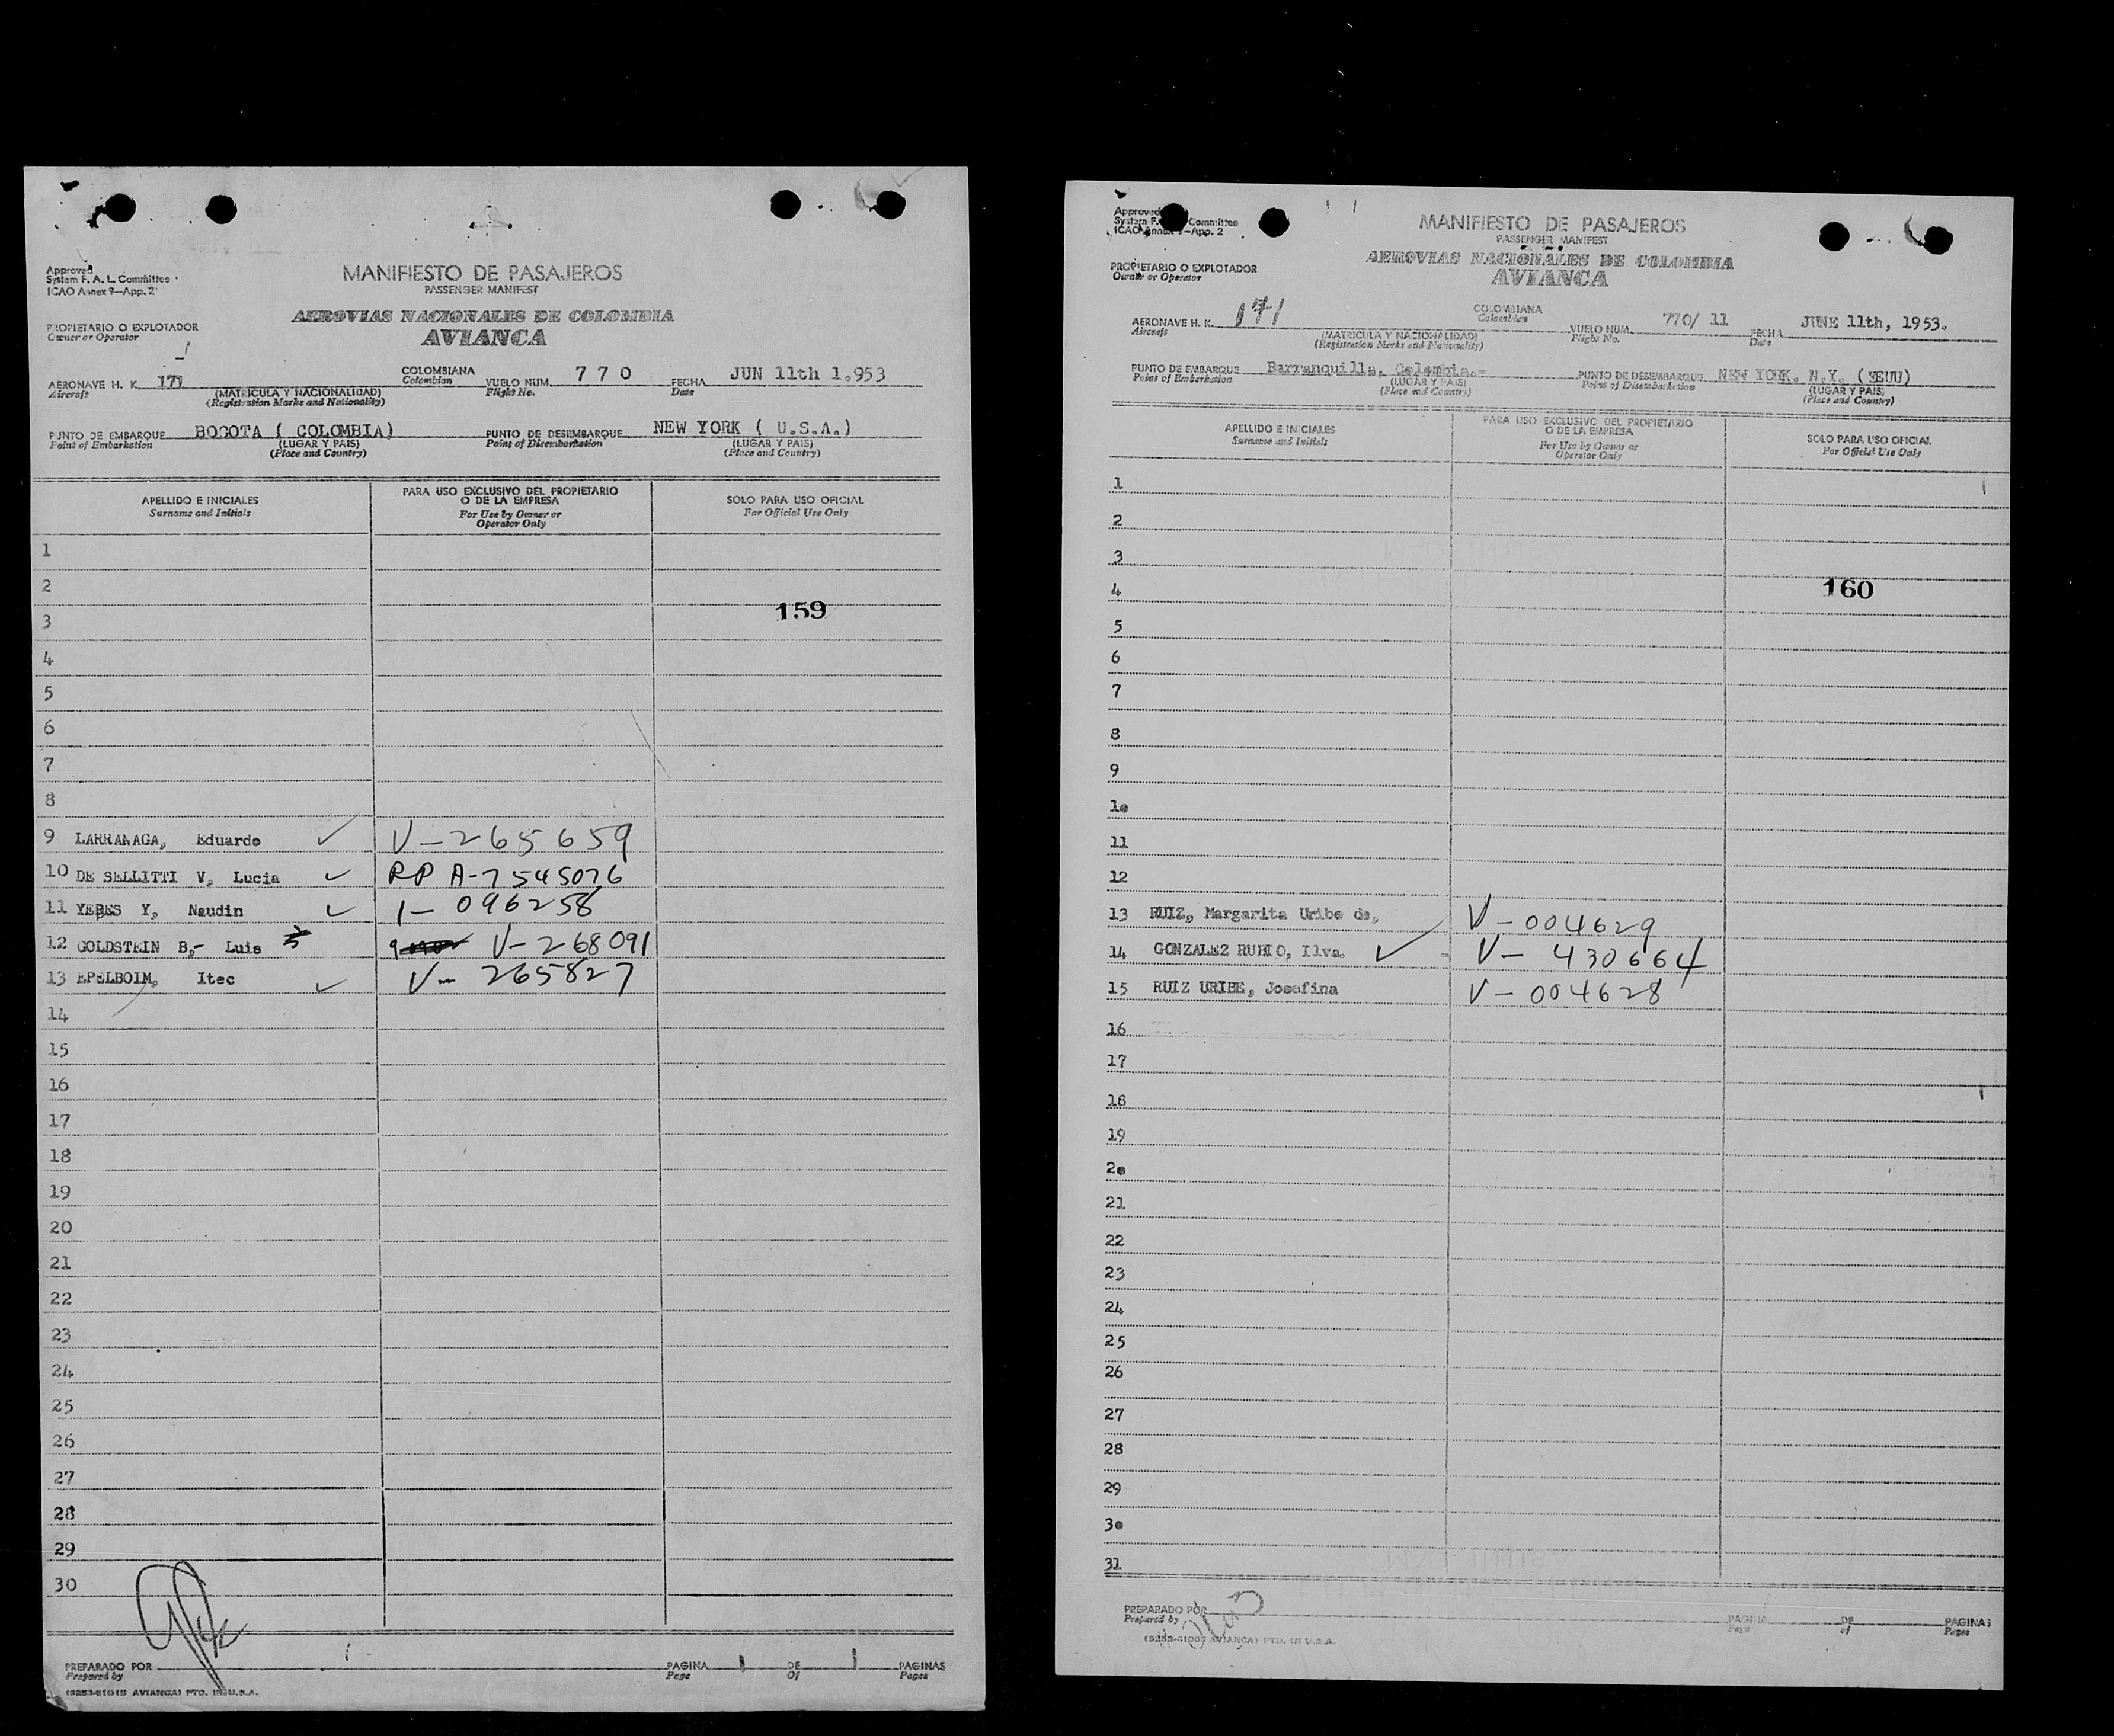 Approved
System F. A. L. Committee
ICAO Annex 9—App. 2
MANIFIESTO DE PASAJEROS
PASSENGER MANIFEST
AEROVIAS NACIONALES DE COLOMBIA
AVIANCA
PROPIETARIO O EXPLOTADOR
Owner or Operator
AERONAVE H. K. 171 COLOMBIANA VUELO NUM. 7 7 0 FECHA JUN 11th 1.953
Aircraft (MATRICULA Y NACIONALIDAD) Colombian Flight No. Date
(Registration Marks and Nationality)
PUNTO DE EMBARQUE BOGOTA ( COLOMBIA) PUNTO DE DESEMBARQUE NEW YORK ( U.S.A.)
Point of Embarkation (LUGAR Y PAIS) Point of Disembarkation (LUGAR Y PAIS)
(Place and Country) (Place and Country)
APELLIDO E INICIALES PARA USO EXCLUSIVO DEL PROPIETARIO SOLO PARA USO OFICIAL
Surname and Initials O DE LA EMPRESA For Official Use Only
For Use by Owner or
Operator Only
1
2
159
3
4
5
6
7
8
9 LARRANAGA, Eduardo V-265659
10 DE SELLITTI V, Lucia RP A-7545076
11 YEPES Y, Naudin 1- 096258
12 GOLDSTEIN B,- Luis V-268091
13 EPELBOIM, Itec V- 265827
14
15
16
17
18
19
20
21
22
23
24
25
26
27
28
29
30
PREPARADO POR PAGINA 1 DE 1 PAGINAS
Prepared by Page Of Pages
(9253-6101S AVIANCA) PTD. IN U.S.A.
Approved
System F. Committee
ICAO Annex 9—App. 2
MANIFIESTO DE PASAJEROS
PASSENGER MANIFEST
AEROVIAS NACIONALES DE COLOMBIA
AVIANCA
PROPIETARIO O EXPLOTADOR
Owner or Operator
AERONAVE H. K. 171 COLOMBIANA VUELO NUM. 770/ 11 FECHA JUNE 11th, 1953.
Aircraft (MATRICULA Y NACIONALIDAD) Colombian Flight No. Date
(Registration Marks and Nationality)
PUNTO DE EMBARQUE Barranquilla, Colombia.- PUNTO DE DESEMBARQUE NEW YORK. N.Y. (EEUU)
Point of Embarkation (LUGAR Y PAIS) Point of Disembarkation (LUGAR Y PAIS)
(Place and Country) (Place and Country)
APELLIDO E INICIALES PARA USO EXCLUSIVO DEL PROPIETARIO SOLO PARA USO OFICIAL
Surname and Initials O DE LA EMPRESA For Official Use Only
For Use by Owner or
Operator Only
1
2
3
4 160
5
6
7
8
9
10
11
12
13 RUIZ, Margarita Uribe de, V-004629
14 GONZALEZ RUBIO, Ilva. V- 430664
15 RUIZ URIBE, Josefina V-004628
16
17
18
19
20
21
22
23
24
25
26
27
28
29
30
31
PREPARADO POR PAGINA DE PAGINAS
Prepared by Page of Pages
AVIANCA) PTD. IN U.S.A.